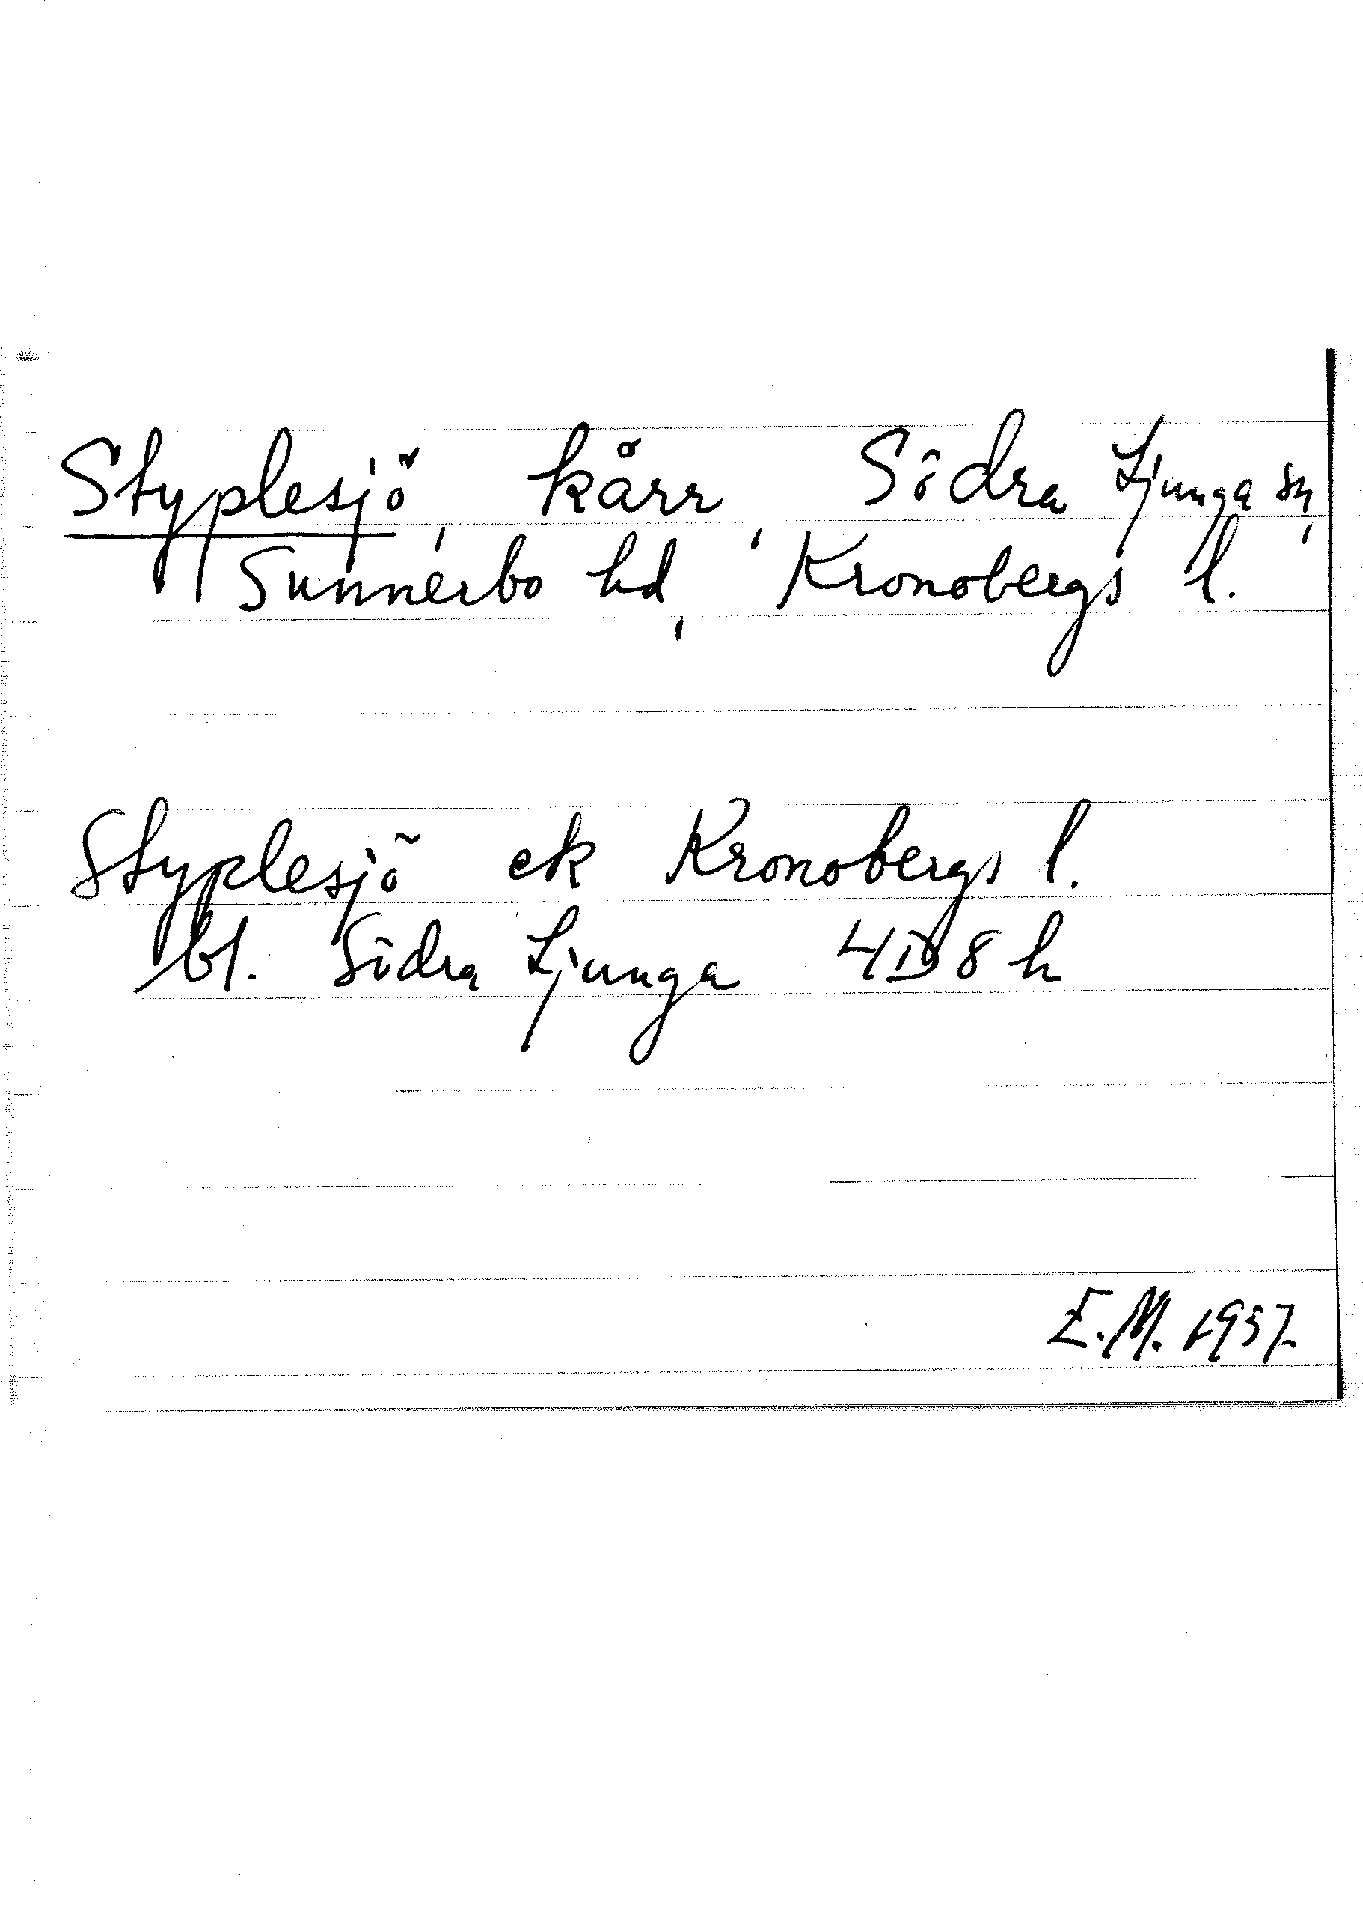 Styplesjö, kärr, Södra Ljunga sn,
Sunnerbo hd, Kronobergs l.
Styplesjö ek Kronobergs l.
bl. Södra Ljunga 4D8h
E.M. 1957